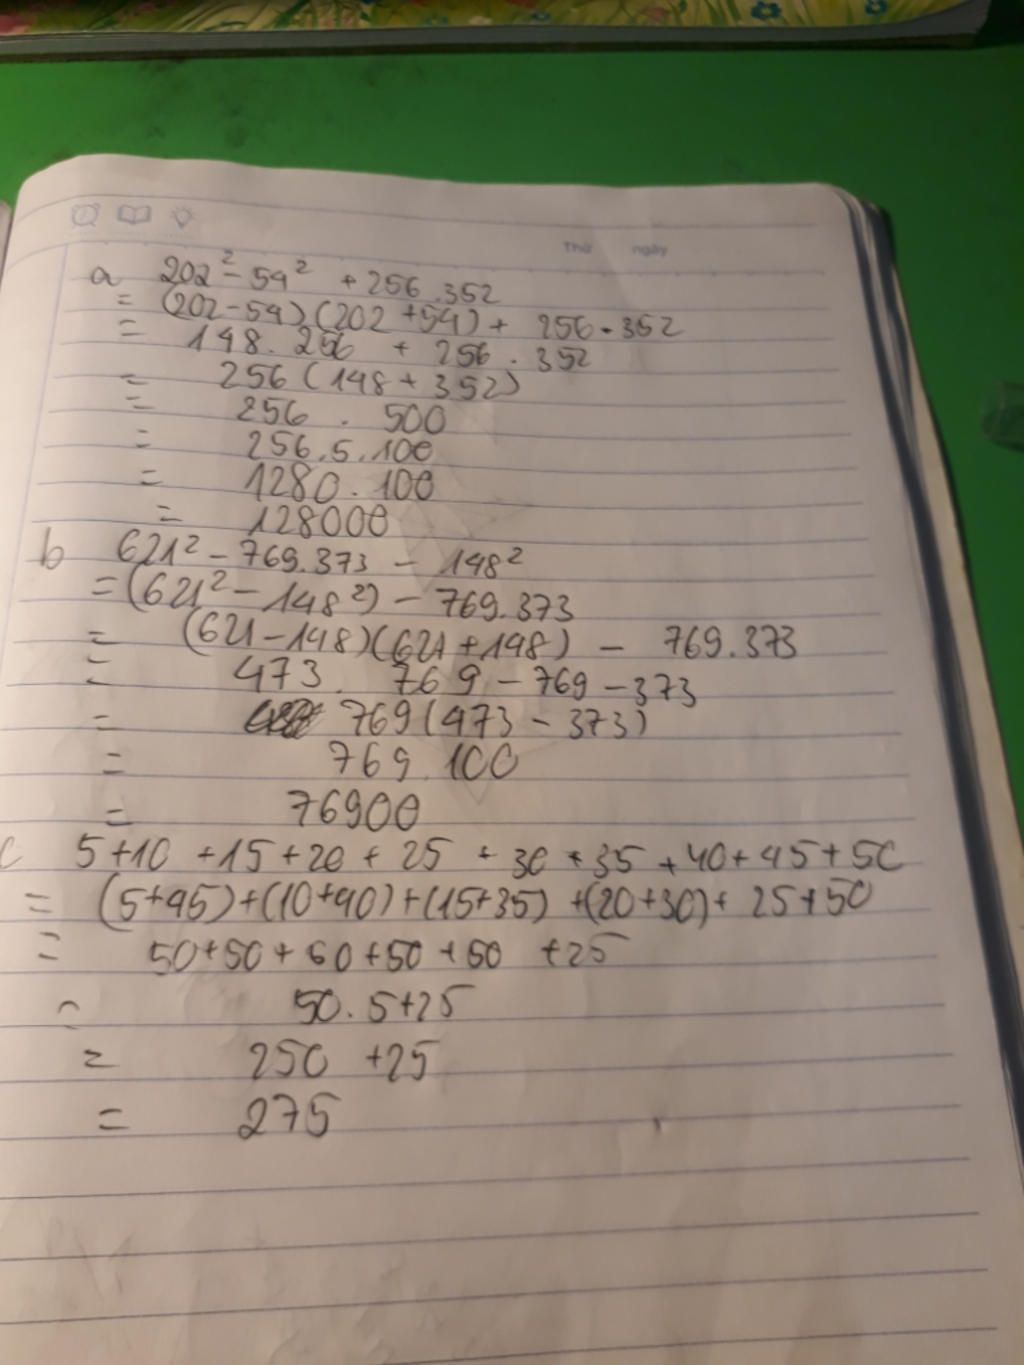 Thứ ngày
a 202² - 54² + 256.352
= (202-54)(202+54) + 256.352
= 148.256 + 256.352
= 256(148+352)
= 256.500
= 256.5.100
= 1280.100
= 128000
b 621² - 769.373 - 148²
= (621² - 148²) - 769.373
= (621-148)(621+148) - 769.373
= 473.769 - 769 - 373
= 769(473-373)
= 769.100
= 76900
c 5+10+15+20+25+30+35+40+45+50
= (5+45)+(10+40)+(15+35)+(20+30)+25+50
= 50+50+50+50+50+25
= 50.5+25
= 250+25
= 275